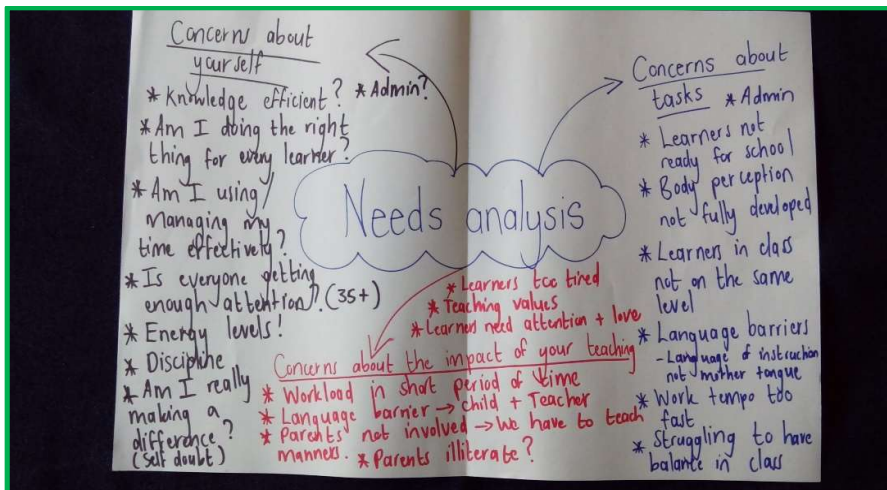 Needs analysis
Concerns about
yourself
* Knowledge efficient? * Admin?
* Am I doing the right
thing for every learner?
* Am I using/
managing my
time effectively?
* Is everyone getting
enough attention? (35+)
* Energy levels!
* Discipline
* Am I really
making a
difference?
(Self doubt)
Concerns about
tasks * Admin
* Learners not
ready for school
* Body perception
not fully developed
* Learners in class
not on the same
level
* Language barriers
- Language of instruction
not mother tongue
* Work tempo too
fast
* Struggling to have
balance in class
* Learners too tired
* Teaching values
* Learners need attention + love
Concerns about the impact of your teaching
* Workload in short period of time
* Language barrier → child + Teacher
* Parents not involved → We have to teach
manners. * Parents illiterate?